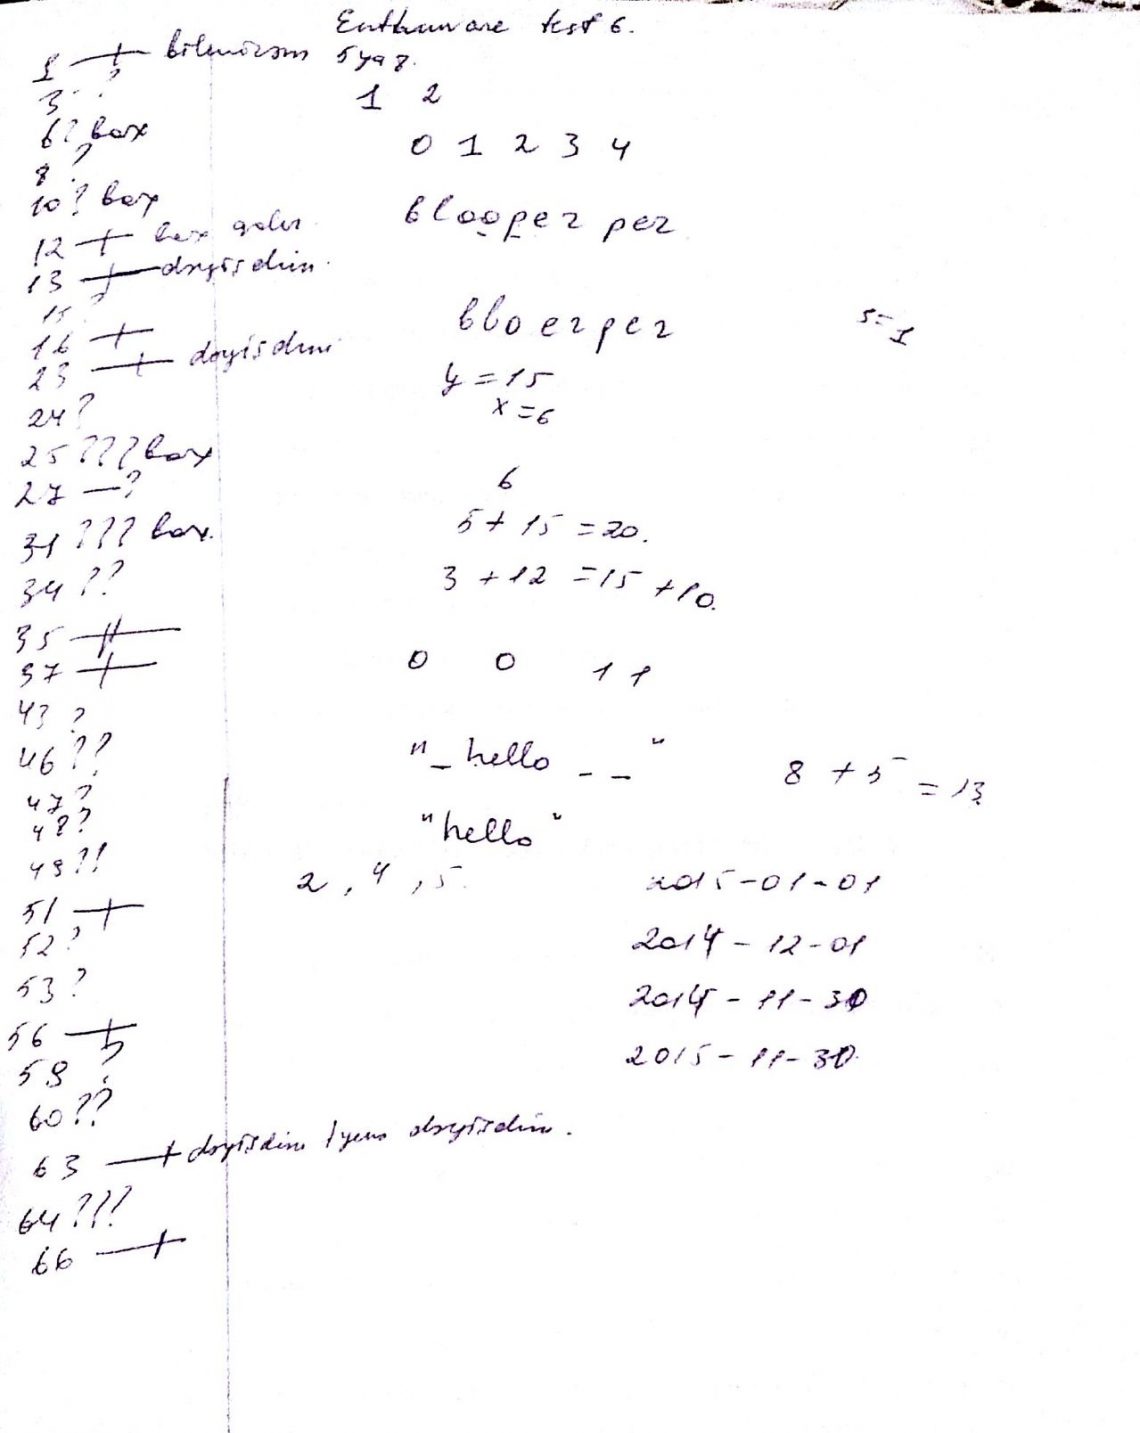 Enthuware test 6.
1 —+ bilmirəm 5 ya 8.
3 ?
1 2
6? bax
0 1 2 3 4
8 ?
10? bax
blooper per
12 + bax
13 —+ dəyişdim.
15 ?
blo er per s=1
16 +
23 —+ dəyişdim
y = 15
24 ?
x = 6
25 ??? bax
6
27 —?
5 + 15 = 20.
31 ??? bax.
3 + 12 = 15 + 10.
34 ??
35 —++
37 —+
0 0 1 1
43 ?
46 ??
"_ hello _ _" 8 + 5 = 13
47 ?
48 ?
"hello"
49 ?!
2, 4, 5. 2015-01-01
51 —+
52 ?
2014 - 12 - 01
53 ?
2014 - 11 - 30
56 —+
2015 - 11 - 30
59 ?
60 ??
63 —+ dəyişdim yenə dəyişdim.
64 ???
66 —+